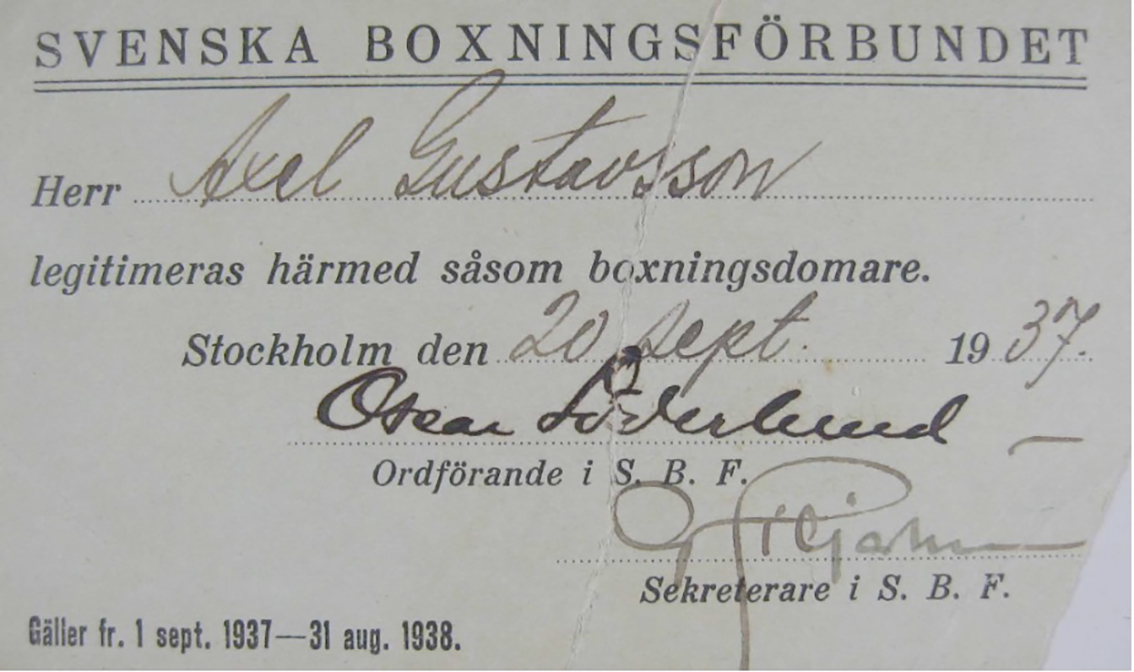 SVENSKA BOXNINGSFÖRBUNDET
Herr Axel Gustavsson
legitimeras härmed såsom boxningsdomare.
Stockholm den 20 sept. 1937.
Oscar Söderlund
Ordförande i S. B. F.
Sekreterare i S. B. F.
Gäller fr. 1 sept. 1937—31 aug. 1938.